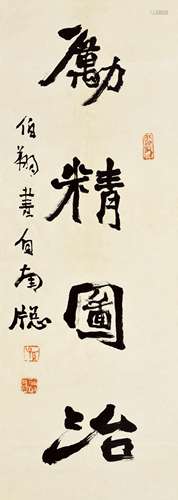 勵精圖治
伯翔書自南窓